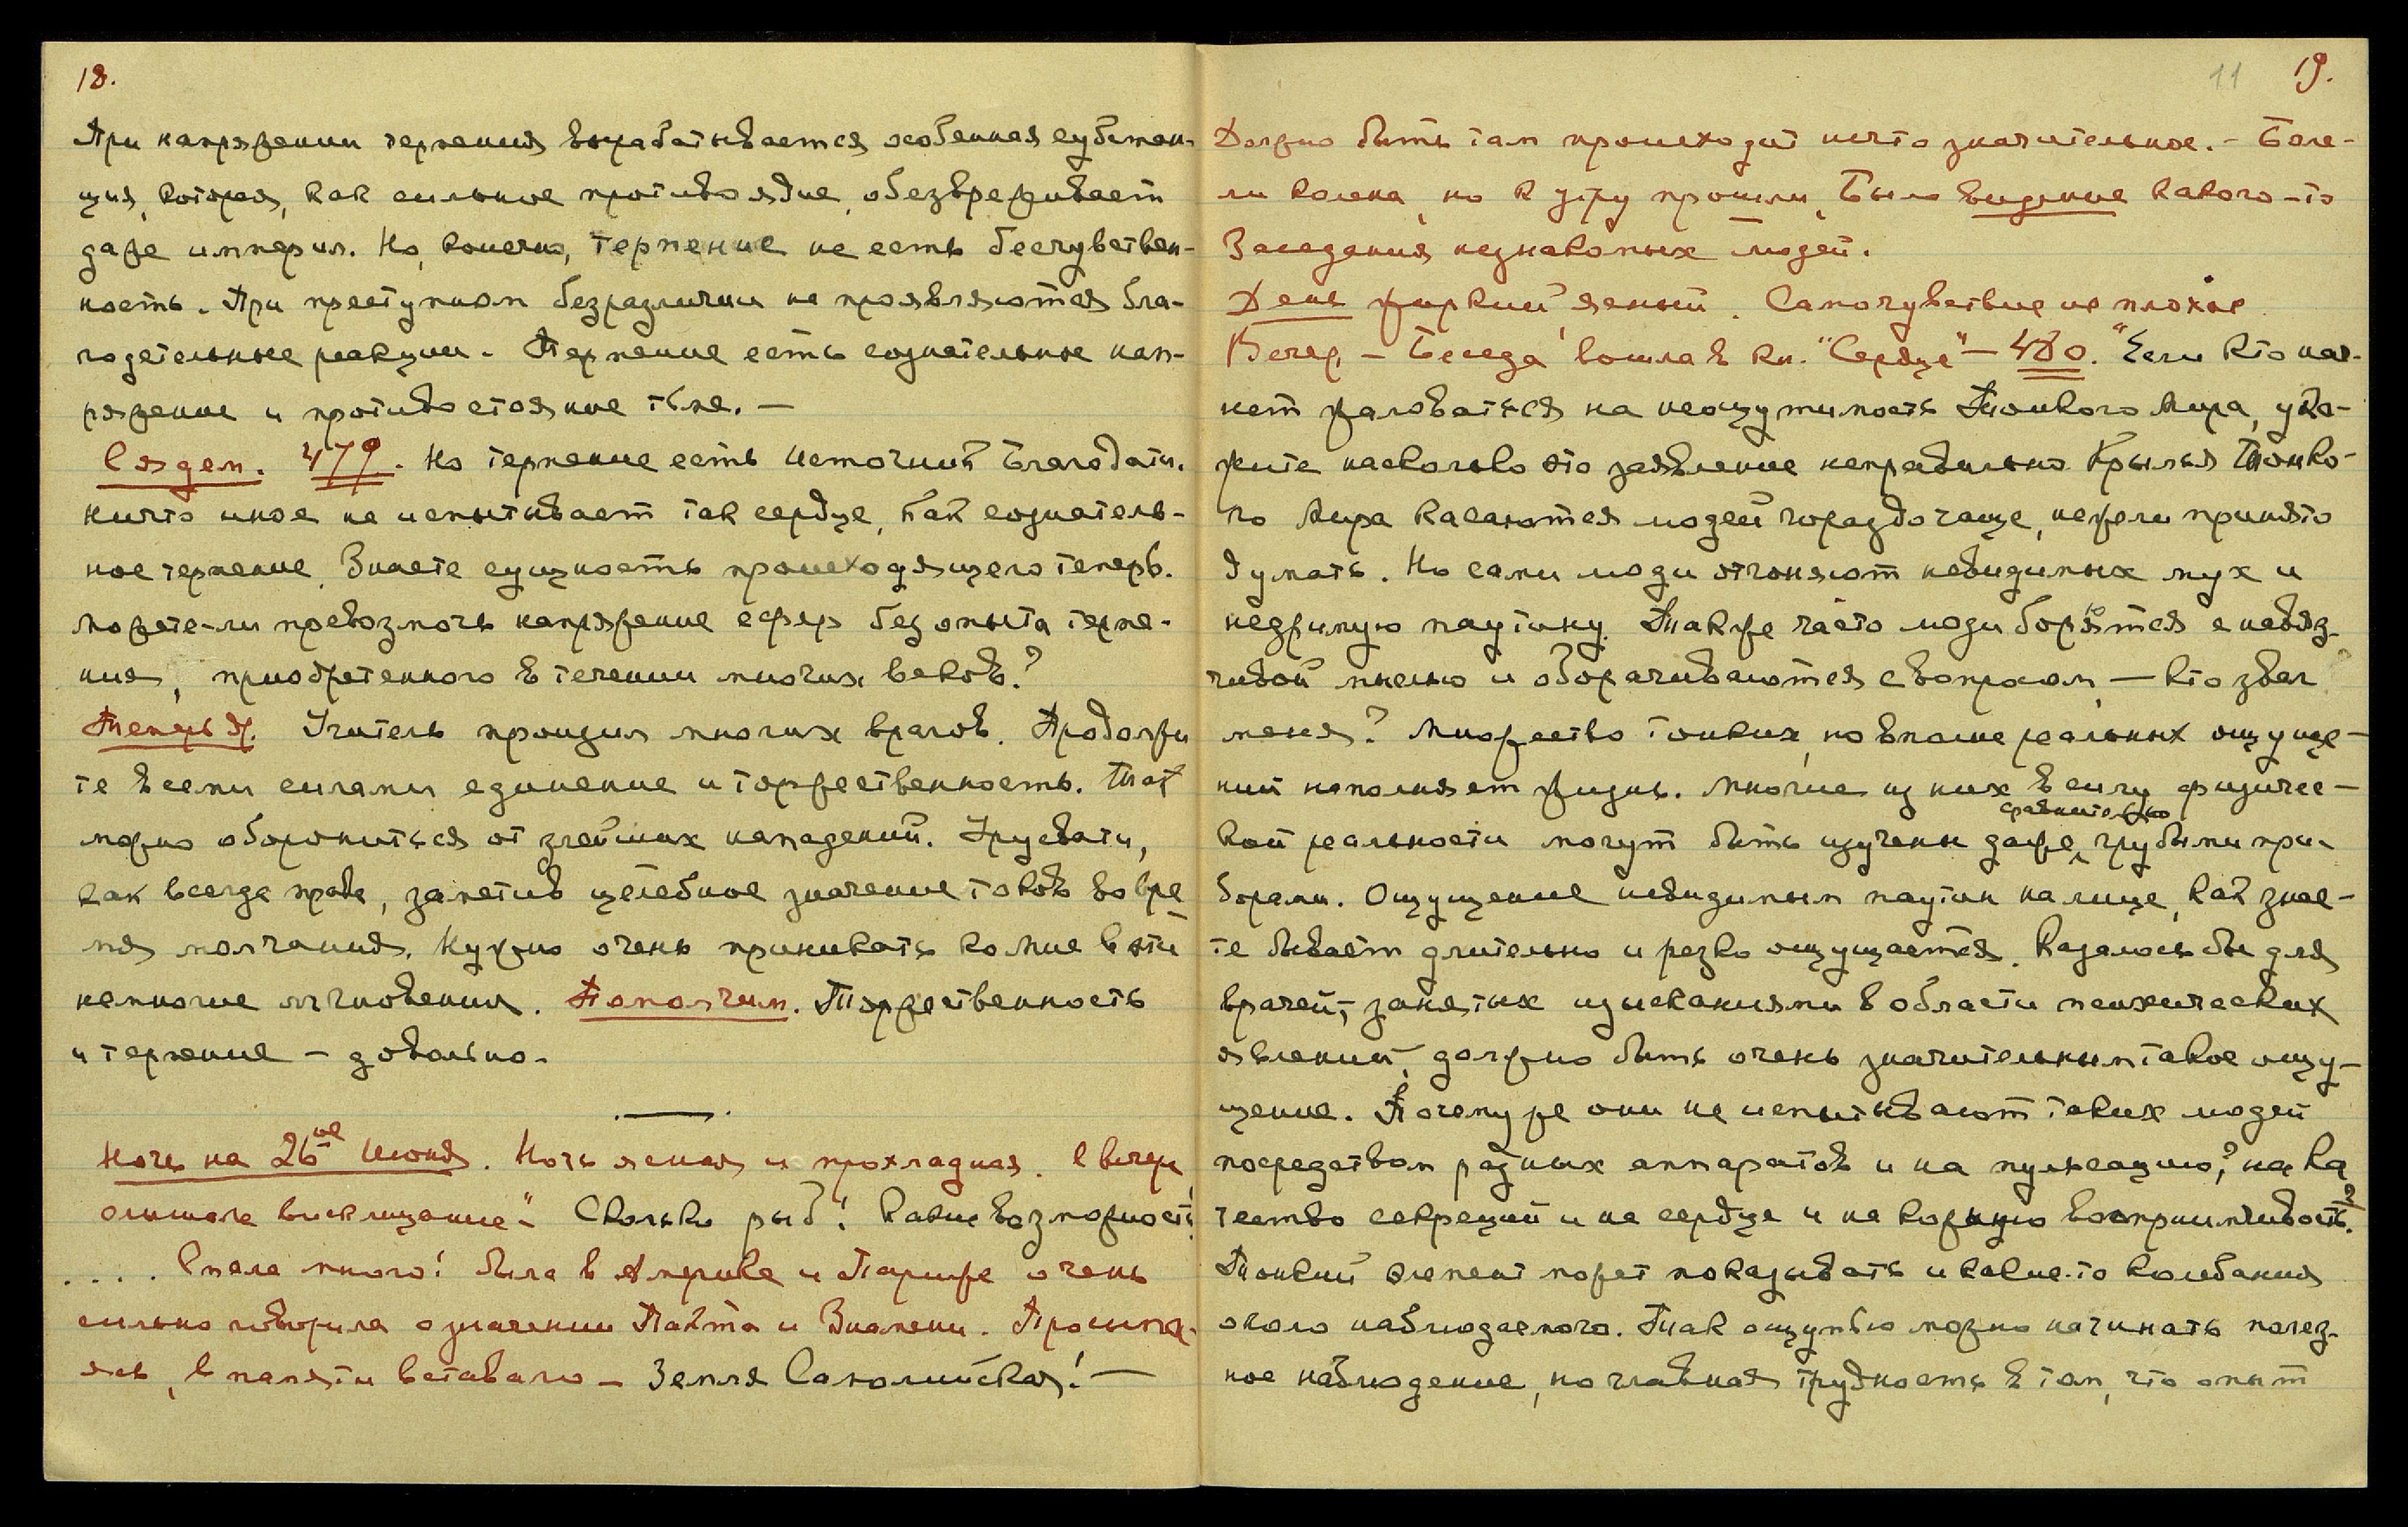 18.
При напряжении терпения вырабатывается особенная субстан-
ция, которая, как сильное противоядие, обезвреживает
даже империл. Но, конечно, терпение не есть бесчувствен-
ность. При преступном безразличии не проявляются бла-
годетельные реакции. Терпение есть сознательное нап-
ряжение и противостояние тьме. —
Сядем. 479. Но терпение есть Источник Благодати.
Ничто иное не испытывает так сердце, как сознатель-
ное терпение. Знаете сущность происходящего теперь.
Можете-ли превозмочь напряжение сфер без опыта терпе-
ния, приобретенного в течении многих веков?
Теперь др. Учитель пронзил многих врагов. Продолжи
те всеми силами единение и торжественность. Так
можно оборониться от злейших нападений. Урусвати,
как всегда права, заметив целебное значение токов во вре
мя молчания. Нужно очень приникать ко Мне в эти
немногие мгновения. Помолчим. Торжественность
и терпение — довольно.
Ночь на 26ое Июня. Ночь ясная и прохладная. С вечера
слышала восклицание — "Сколько рыб! Какие возможности!
.... Спала много! была в Америке и Париже очень
сильно говорила о значении Пакта и Знамени. Просыпа-
ясь, в памяти вставало — Земля Сакомийская! —
11 19.
Должно быть там происходит нечто значительное. — Боле-
ли колена, но к утру прошли. Было видение какого-то
Заседания незнакомых людей.
День жаркий, ясный. Самочувствие не плохое.
Вечер, — Беседа вошла в кн. "Сердце" — 480. "Если кто нач-
нет жаловаться на неощутимость Тонкого Мира, ука-
жите насколько это заявление неправильно. Крылья Тонко-
го Мира касаются людей гораздо чаще, нежели принято
думать. Но сами люди отгоняют невидимых мух и
незримую паутину. Также часто люди борются с навяз-
чивой мыслью и оборачиваются с вопросом, — кто звал
меня? Множество тонких, но вполне реальных ощуще-
ний наполняет жизнь. Многие из них в силу физичес-
сравнительно
кой реальности могут быть изучены даже грубыми при-
борами. Ощущение невидимых паутин на лице, как знае-
те бывает длительно и резко ощущается. Казалось бы для
врачей, занятых изысканиями в области психических
явлений, должно быть очень значительным такое ощу-
щение. Почему же они не испытывают таких людей
посредством разных аппаратов и на пульсацию, на ка
чество секреций и на сердце и на кожную восприимчивость?
Тонкий элемент может показывать и какие-то колебания
около наблюдаемого. Так ощупью можно начинать полез-
ное наблюдение, но главная трудность в том, что опыт